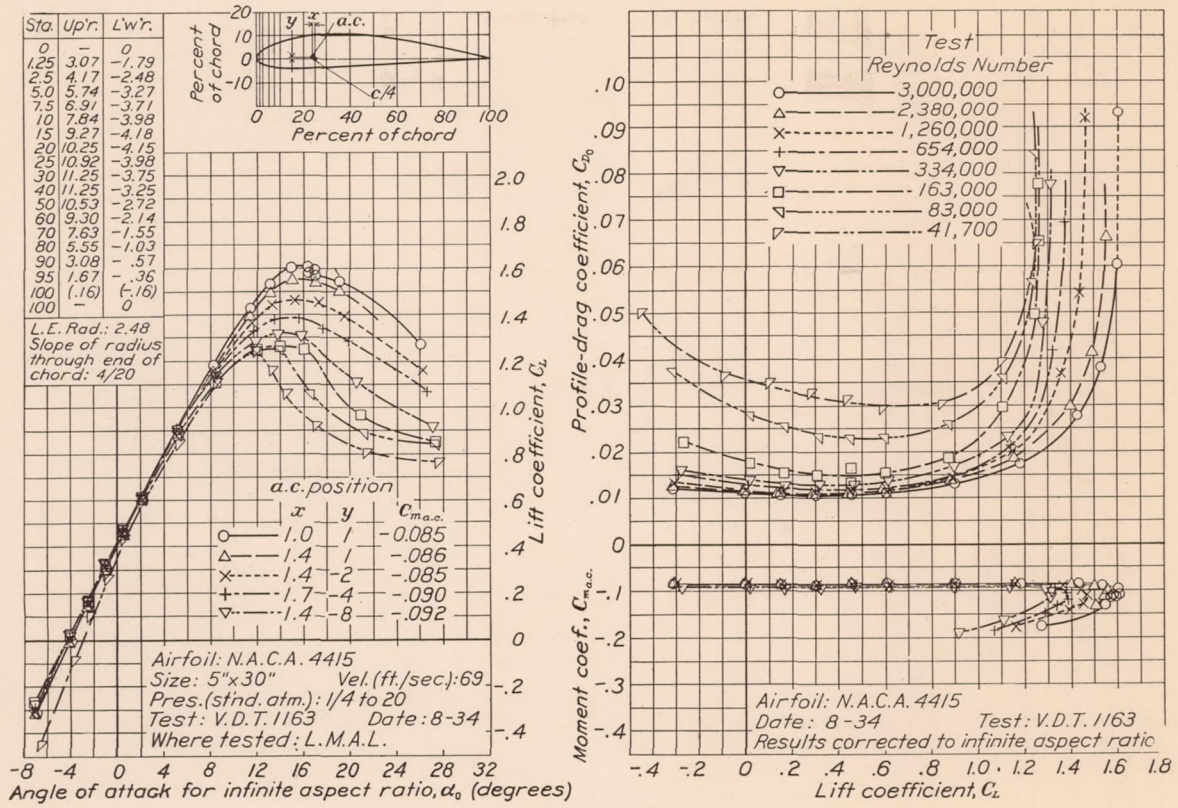 Sta. Up'r. L'w'r.
0 – 0
1.25 3.07 -1.79
2.5 4.17 -2.48
5.0 5.74 -3.27
7.5 6.91 -3.71
10 7.84 -3.98
15 9.27 -4.18
20 10.25 -4.15
25 10.92 -3.98
30 11.25 -3.75
40 11.25 -3.25
50 10.53 -2.72
60 9.30 -2.14
70 7.63 -1.55
80 5.55 -1.03
90 3.08 -.57
95 1.67 -.36
100 (.16) (-.16)
100 – 0
L.E. Rad.: 2.48
Slope of radius
through end of
chord: 4/20
Percent
of chord
20
10
0
-10
y x a.c.
c/4
0 20 40 60 80 100
Percent of chord
2.0
1.8
1.6
1.4
1.2
1.0
.8
.6
.4
.2
0
-.2
-.4
Lift coefficient, CL
a.c. position
x y Cm a.c.
1.0 1 -0.085
1.4 1 -.086
1.4 -2 -.085
1.7 -4 -.090
1.4 -8 -.092
Airfoil: N.A.C.A. 4415
Size: 5"x30" Vel. (ft./sec.): 69
Pres. (st'nd. atm.): 1/4 to 20
Test: V.D.T. 1163 Date: 8-34
Where tested: L.M.A.L.
-8 -4 0 4 8 12 16 20 24 28 32
Angle of attack for infinite aspect ratio, α0 (degrees)
Test
Reynolds Number
3,000,000
2,380,000
1,260,000
654,000
334,000
163,000
83,000
41,700
Profile-drag coefficient, CD0
.10
.09
.08
.07
.06
.05
.04
.03
.02
.01
0
Moment coef., Cm a.c.
-.1
-.2
-.3
-.4
Airfoil: N.A.C.A. 4415
Date: 8-34 Test: V.D.T. 1163
Results corrected to infinite aspect ratio
-.4 -.2 0 .2 .4 .6 .8 1.0 1.2 1.4 1.6 1.8
Lift coefficient, CL